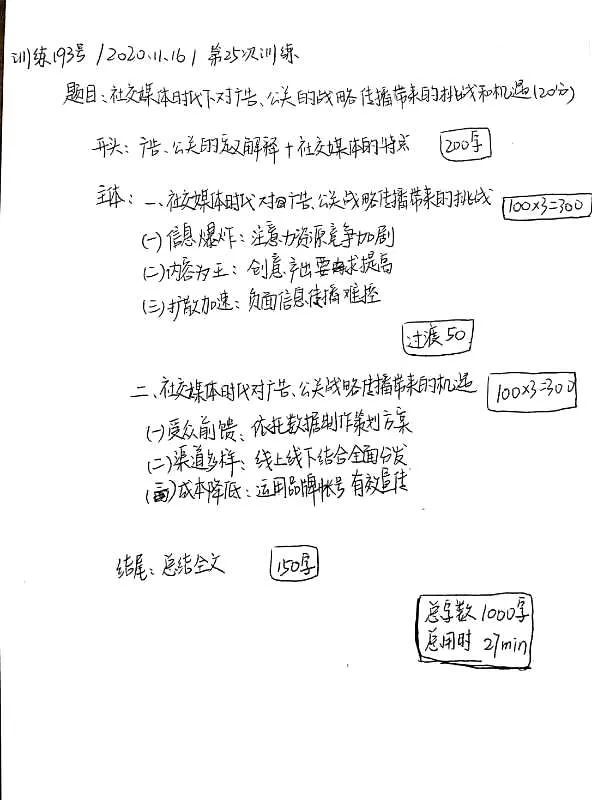 训练193号 / 2020.11.16 / 第25次训练
题目：社交媒体时代下对广告、公关的战略传播带来的挑战和机遇(20分)
开头：广告、公关的定义解释+社交媒体的特点 200字
主体：一、社交媒体时代对广告、公关战略传播带来的挑战 100×3=300
(一)信息爆炸：注意力资源竞争加剧
(二)内容为王：创意产出要求提高
(三)扩散加速：负面信息传播难控
过渡50
二、社交媒体时代对广告、公关战略传播带来的机遇 100×3=300
(一)受众前馈：依托数据制作策划方案
(二)渠道多样：线上线下结合全面分发
(三)成本降低：运用品牌帐号有效宣传
结尾：总结全文 150字
总字数 1000字
总用时 27min